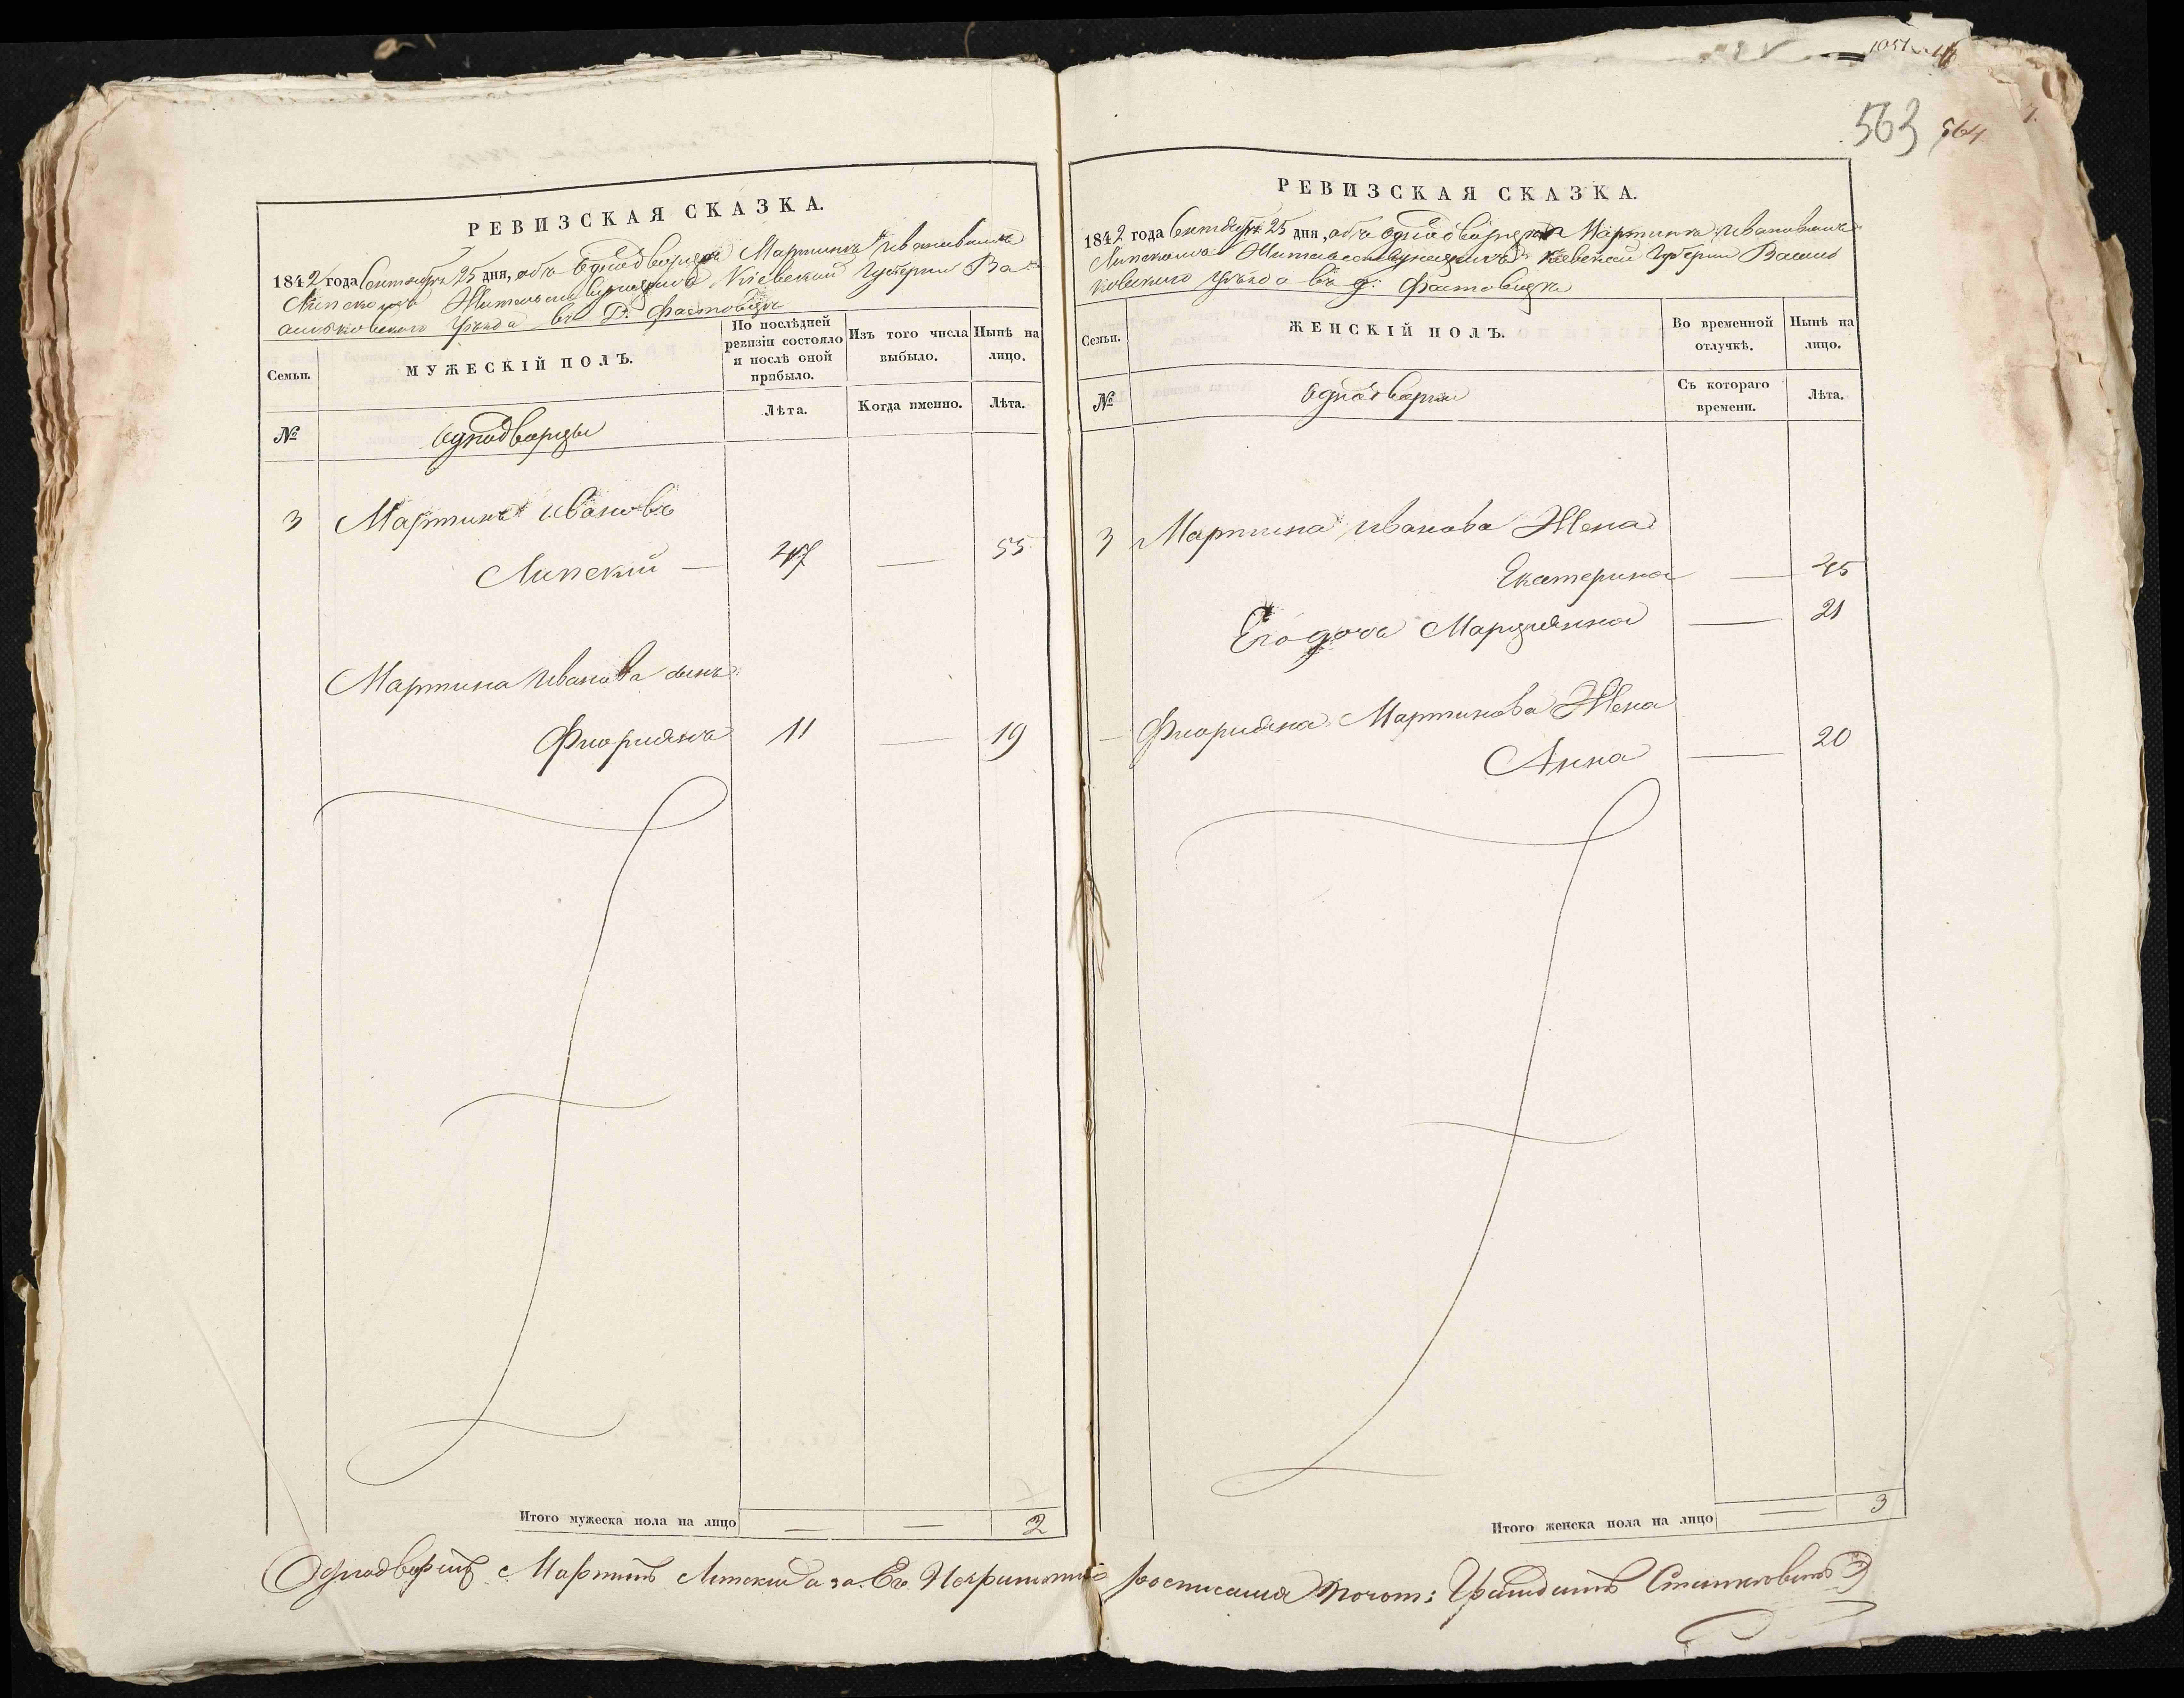 1051
563 564
РЕВИЗСКАЯ СКАЗКА.
1842 года Сентября 25 дня, объ однодворце Мартинѣ Ивановичѣ
Липскомъ Жительствующемъ Кіевской Губерніи Ва-
сильковскаго Уѣзда въ Д. Фастовцѣ
Семьи.
МУЖЕСКІЙ ПОЛЪ.
По послѣдней ревизіи состояло и послѣ оной прибыло.
Изъ того числа выбыло.
Нынѣ на лицо.
№
однодворцы
Лѣта.
Когда именно.
Лѣта.
3 Мартинъ Ивановъ
Липскій — 47 — 55
Мартина Иванова сынъ
Флоріянъ 11 — 19
Итого мужеска пола на лицо — — 2
РЕВИЗСКАЯ СКАЗКА.
1842 года Сентября 25 дня, объ однодворце Мартинѣ Ивановичѣ
Липскомъ Жительствующемъ Кіевской Губерніи Василь
ковскаго Уѣзда въ д: Фастовцѣ
Семьи.
ЖЕНСКІЙ ПОЛЪ.
Во временной отлучкѣ.
Нынѣ на лицо.
№
однодворки
Съ котораго времени.
Лѣта.
3 Мартина Иванова Жена
Екатерина — 45
Его дочь Марціянна — 21
— Флоріяна Мартинова Жена
Анна — 20
Итого женска пола на лицо — 3
Однодворецъ Мартинъ Липскій а за Его
росписался почот: Гражданинъ